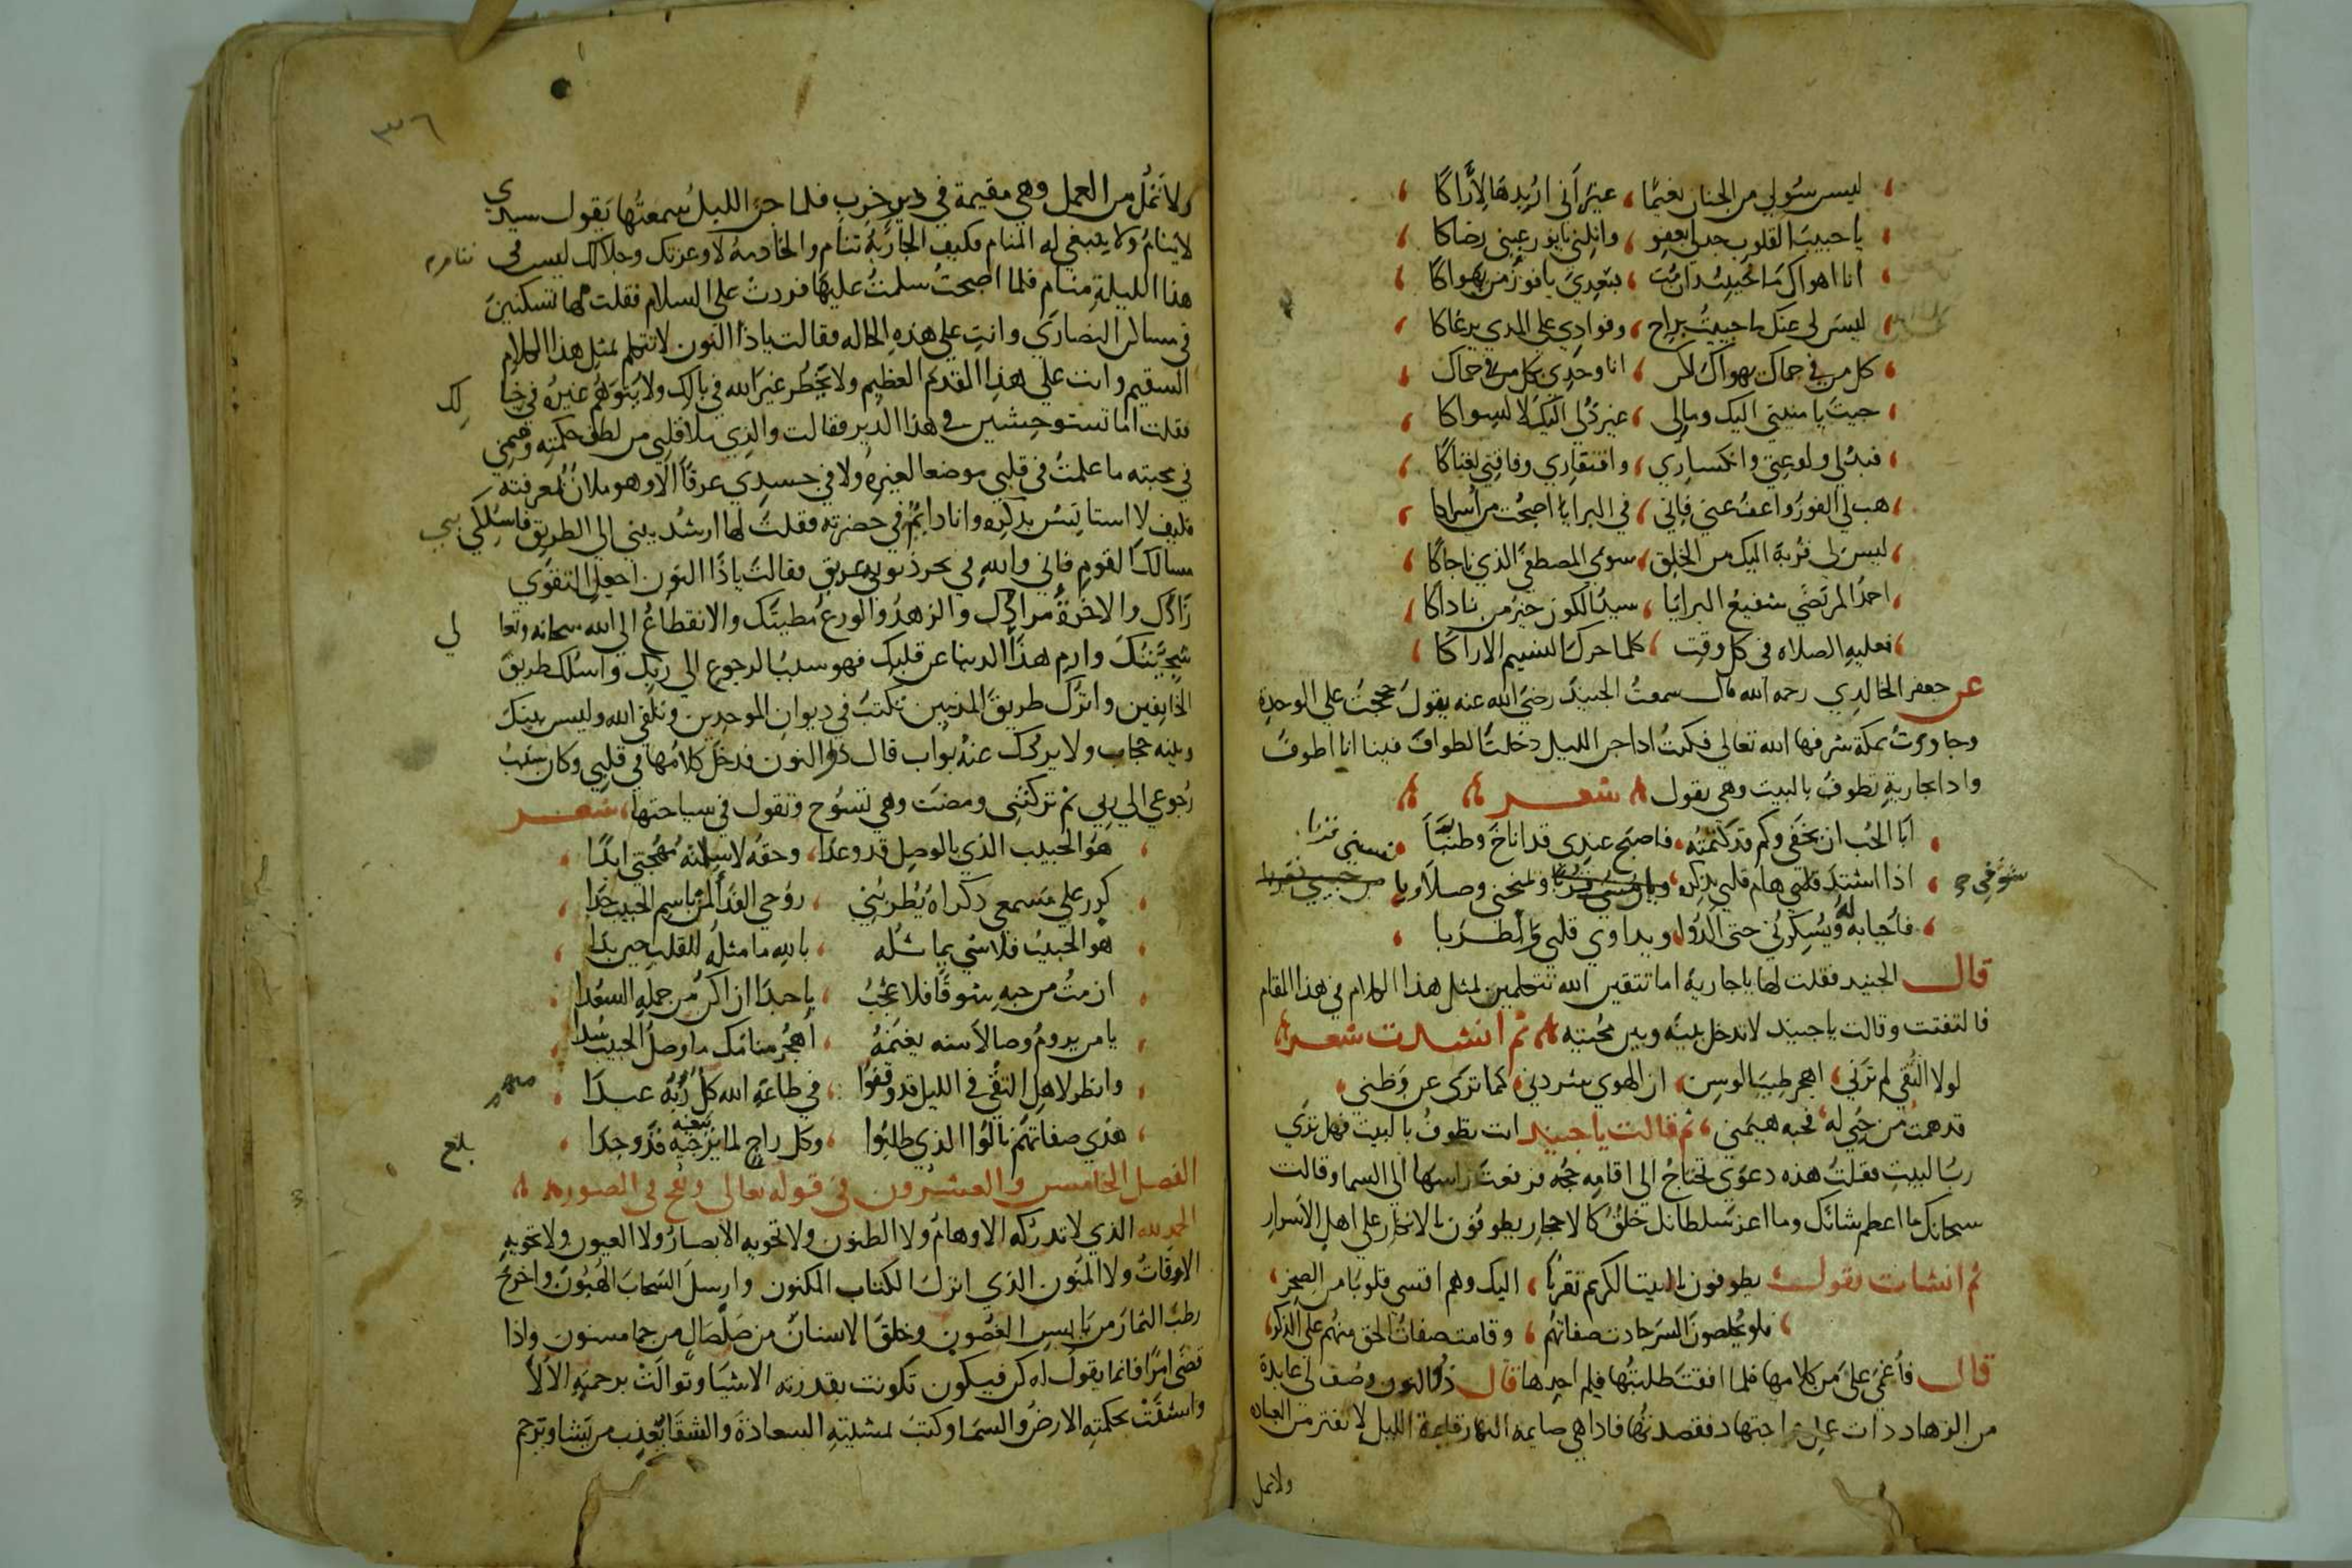 ليس سولي من الجنان نعيمًا ، غير أني اريدها لاراكا
يا حبيب القلوب جد لي بعفو ، وانلني يا نور عيني رضاكا
انا اهواك ما حييت وان مت ، بتعدي يا فوز من يهواكا
ليس لي عنك ما حييت براح ، وفوادي على المدي يرعاكا
كل من في حماك يهواك لكن ، انا وحدي بكل من في حماك
جيت يا منيتي اليك ومالي ، غير ذلي اليك لا لسواكا
فبذلي ولوعتي وانكساري ، وافتقاري وفاقتي لغناكا
هب لي الفوز واعف عني فاني ، في البرايا اصبحت من اسراكا
ليس لي قربة اليك من الخلق ، سوى المصطفى الذي ناجاكا
احمد المرتضى شفيع البرايا ، سيد الكون خير من ناداكا
فعليه الصلاه في كل وقت ، كلما حرك النسيم الاراكا
عن جعفر الخالدي رحمه الله قال سمعت الجنيد رضي الله عنه يقول حججت علي الوحدة
وجاورت بمكة شرفها الله تعالى فكنت اذا جن الليل دخلت الطواف فبينا انا اطوف
واذا بجارية تطوف بالبيت وهي تقول شعر
ابا الحب ان يخفى وكم قد كتمته ، فاصبح عندي قد اناخ وطنبا
اذا اشتد شوقي هام قلبي بذكره ، وتمنحني وصلا ويا
فاحيا به له ويسكرني حتى الذ ويداوي قلبي واطربا
قال الجنيد فقلت لها يا جارية اما تتقين الله تتكلمين بمثل هذا الكلام في هذا المقام
فالتفتت وقالت يا جنيد لا تدخل بينه وبين محبته ثم انشدت شعرا
لولا التقي لم ترني ، اهجر طيب الوسن ، ان الهوي شردني ، كما ترى عن وطني
قد همت من حبي له ، فحبه هيمني ، ثم قالت يا جنيد انت تطوف بالبيت فهل تري
رب البيت فقلت هذه دعوي تحتاج الي اقامة حجه فرفعت راسها الى السما وقالت
سبحانك ما اعظم شانك وما اعز سلطانك خلق كالاحجار يطوفون بالاحجار على اهل الاسرار
ثم انشات تقول يطوفون بالبيت الكريم تقربًا ، اليك وهم اقسى قلوبًا من الصخر
فلو يخلصون السر جادت صفاتهم ، وقامت صفات الحق منهم على الذكر
قال فاغمي علي من كلامها فلما افقت طلبتها فلم اجدها قال ذو النون وصف لي عابدة
من الزهاد ذات علم واجتهاد فقصدتها فاذا هي صايمة النهار قايمة الليل لا تفتر من العباده
ولا تمل
٣٦
ولا تمل من العمل وهي مقيمة في دير خرب فلما جن الليل سمعتها تقول سيدي
لا ينام ولا ينبغي له المنام فكيف الجارية تنام والخادمة لا وعزتك وجلالك ليس لي
هذا الليلة منام فلما اصبحت سلمت عليها فردت علي السلام فقلت لها تسكنين
في مساكن النصاري وانت علي هذه الحاله فقالت يا ذا النون لا تتكلم بمثل هذا الكلام
السقيم وانت علي هذا القدم العظيم ولا يخطر غير الله في بالك ولا يتوهم غيره في خيالك
فقلت اما تستوحشين في هذا الدير فقالت والذي ملا قلبي من لطف حكمته وهيمني
في محبته ما علمت في قلبي موضعا لغيره ولا في جسدي عرقًا الا وهو ملان بمعرفته
فكيف لا استانس بذكره وانا دايم في حضرته فقلت لها ارشديني الي الطريق فاسلكي بي
مسالك القوم فاني والله في بحر ذنوبي غريق فقالت يا ذا النون اجعل التقوي
زادك والاخرة مرادك والزهد والورع مطيتك والانقطاع الي الله سبحانه وتعالي
سجيتك وارم هذا الدنيا عن قلبك فهو سبب الرجوع الي ربك واسلك طريق
الخايفين واترك طريق المذنبين تكتب في ديوان الموحدين وتلقي الله وليس بينك
وبينه حجاب ولا يردك عنه بواب قال ذو النون فدخل كلامها في قلبي وكان سبب
رجوعي الي ربي ثم تركتني ومضت وهي تسوح وتقول في سياحتها شعر
هو الحبيب الذي بالوصل قد وعدا ، وحقه لا سلته مهجتي ابدًا
كرر علي مسمعي ذكراه يطربني ، روحي الفدا لمن باسم الحبيب حدا
هو الحبيب فلا شي يماثله ، بالله ما مثله للقلب حين بدا
ان مت من حبه شوقًا فلا عجب ، يا حبذا ان اكن من جملة السعدا
يا من يروم وصالا منه يغنمه ، اهجر منامك ما وصل الحبيب سدا
وانظر لاهل التقى في الليل قد وقفوا ، في طاعة الله كل ربه عبدا
هذي صفاتهم نالوا الذي طلبوا ، وكل راج لما يرجيه قد وجدا
بلغ
الفصل الخامس والعشرون في قوله تعالى ونفخ في الصور
الحمد لله الذي لا تدركه الاوهام ولا الظنون ولا تحويه الابصار ولا العيون ولا تحويه
الاوقات ولا المنون الذي انزل الكتاب المكنون وارسل السحاب الهتون واخرج
رطب الثمار من يابس الغصون وخلق الانسان من صلصال من حما مسنون واذا
قضى امرًا فانما يقول له كن فيكون تكونت بقدرته الاشيا وتوالت برحمته الالا
واتسقت بحكمته الارض والسما وكتب بمشيته السعادة والشقا يعذب من يشا ويرحم